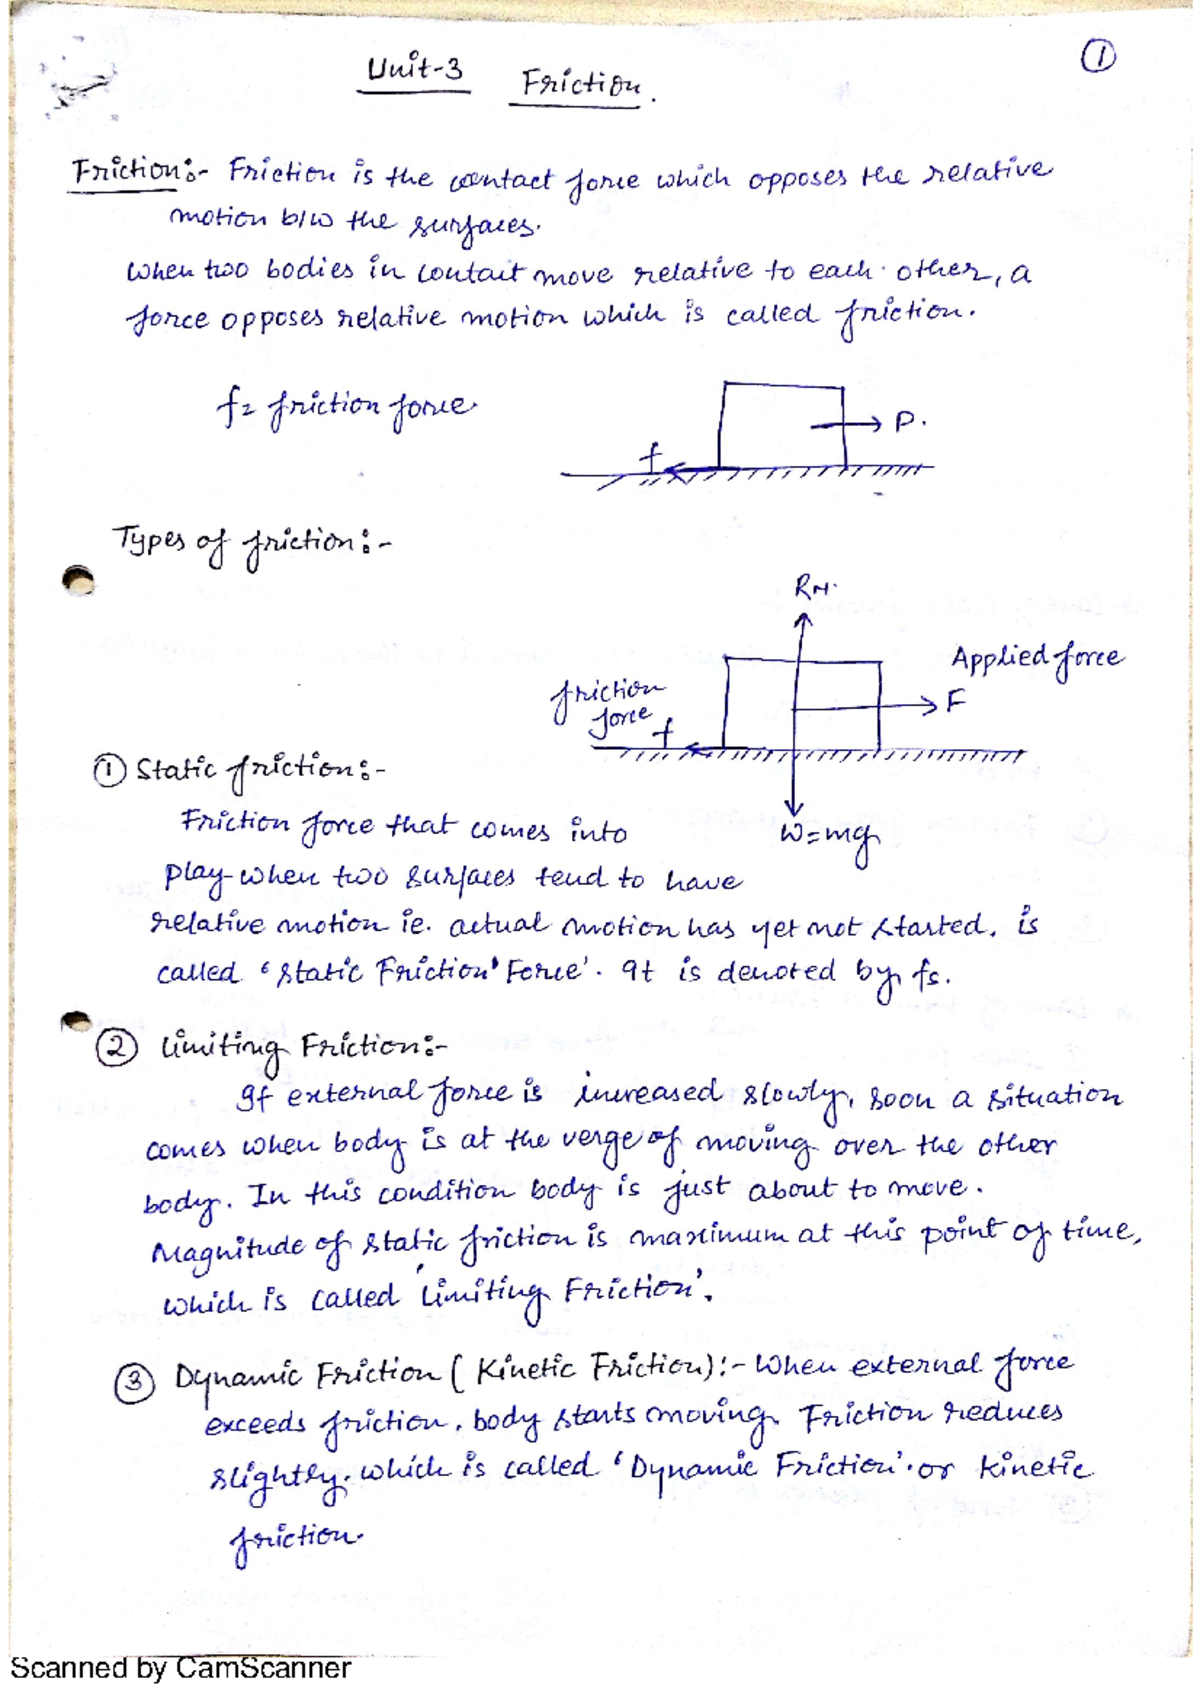 1
Unit-3 Friction.
Friction:- Friction is the contact force which opposes the relative
motion b/w the surfaces.
When two bodies in contact move relative to each other, a
force opposes relative motion which is called friction.
f= friction force.
f
P.
Types of friction:-
RN.
Applied force
F
friction
force
f
① Static friction:-
Friction force that comes into
W=mg
play when two surfaces tend to have
relative motion ie. actual motion has yet not started, is
called 'Static Friction' Force'. It is denoted by fs.
② Limiting Friction:-
If external force is increased slowly, soon a situation
comes when body is at the verge of moving over the other
body. In this condition body is just about to move.
Magnitude of static friction is maximum at this point of time,
which is called 'Limiting Friction'.
③ Dynamic Friction (Kinetic Friction):- When external force
exceeds friction, body starts moving. Friction reduces
slightly, which is called 'Dynamic Friction'. or kinetic
friction.
Scanned by CamScanner